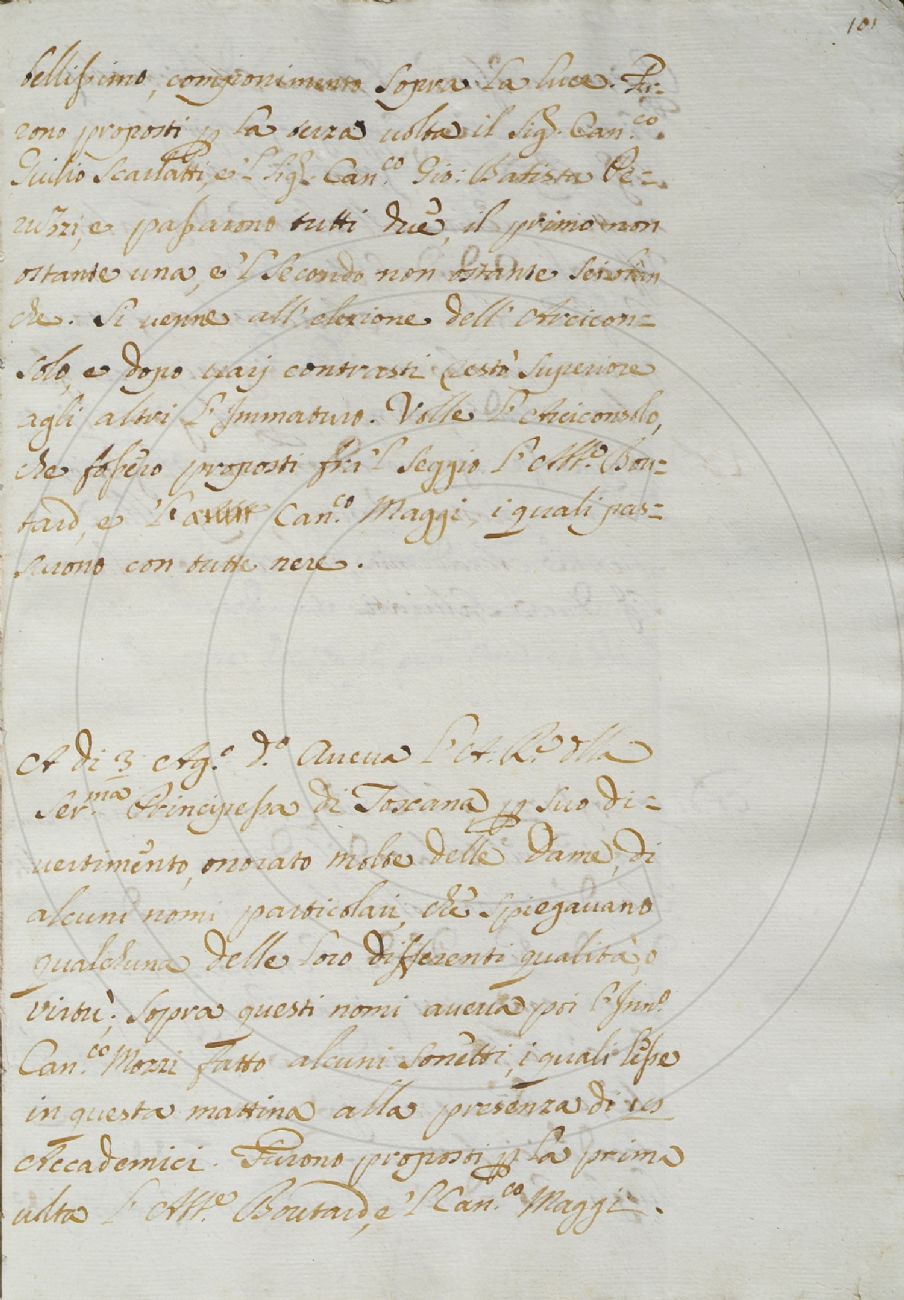 101
bellissimo componimento sopra la luce. Fu-
rono proposti p la terza volta il Sig. Can.co
Giulio Scarlatti, e 'l Sig. Can.co Gio: Batista Pe-
ruzzi, e passarono tutti due, il primo non
ostante una, e 'l secondo non ostante sei bian
che. Si venne all' elezione dell' Arcicon-
solo, e dopo varj contrasti restò superiore
agli altri l'Immaturo. Volle l'Arciconsolo,
che fossero proposti fra 'l seggio l'Abb.e Bou-
tard, e 'l Can.co Maggi, i quali pas-
sarono con tutte nere.
A di 3 Ag.o d.o Aveva l'A. R.e della
Ser.ma Principessa di Toscana p suo di-
vertimento, onorato molte delle Dame, di
alcuni nomi particolari, che spiegavano
qualcheuna delle loro differenti qualità, o
virtù; sopra questi nomi aveva poi l'Inn.o
Can.co Mozzi fatto alcuni sonetti, i quali lesse
in questa mattina alla presenza di 19
Accademici. Furono proposti p la prima
volta l'Abb.e Boutard, e 'l Can.co Maggi.